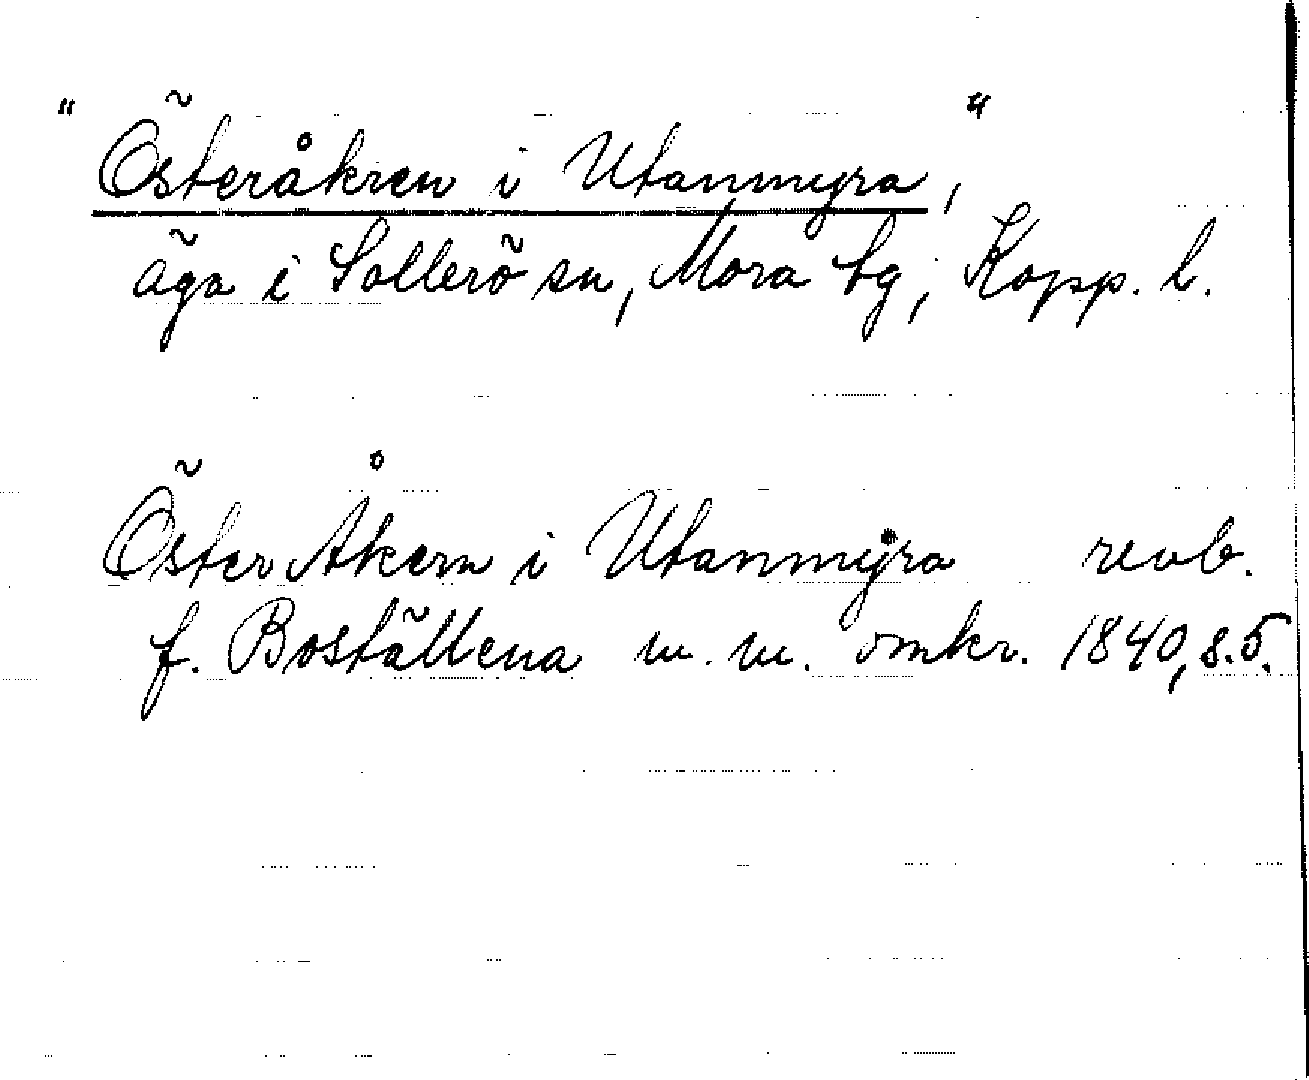 "Österåkren i Utanmyra",
äga i Sollerö sn, Mora tg, Kopp. l.
Öster Åkern i Utanmÿra revb.
f. Boställena m. m. omkr. 1840, s. 5.